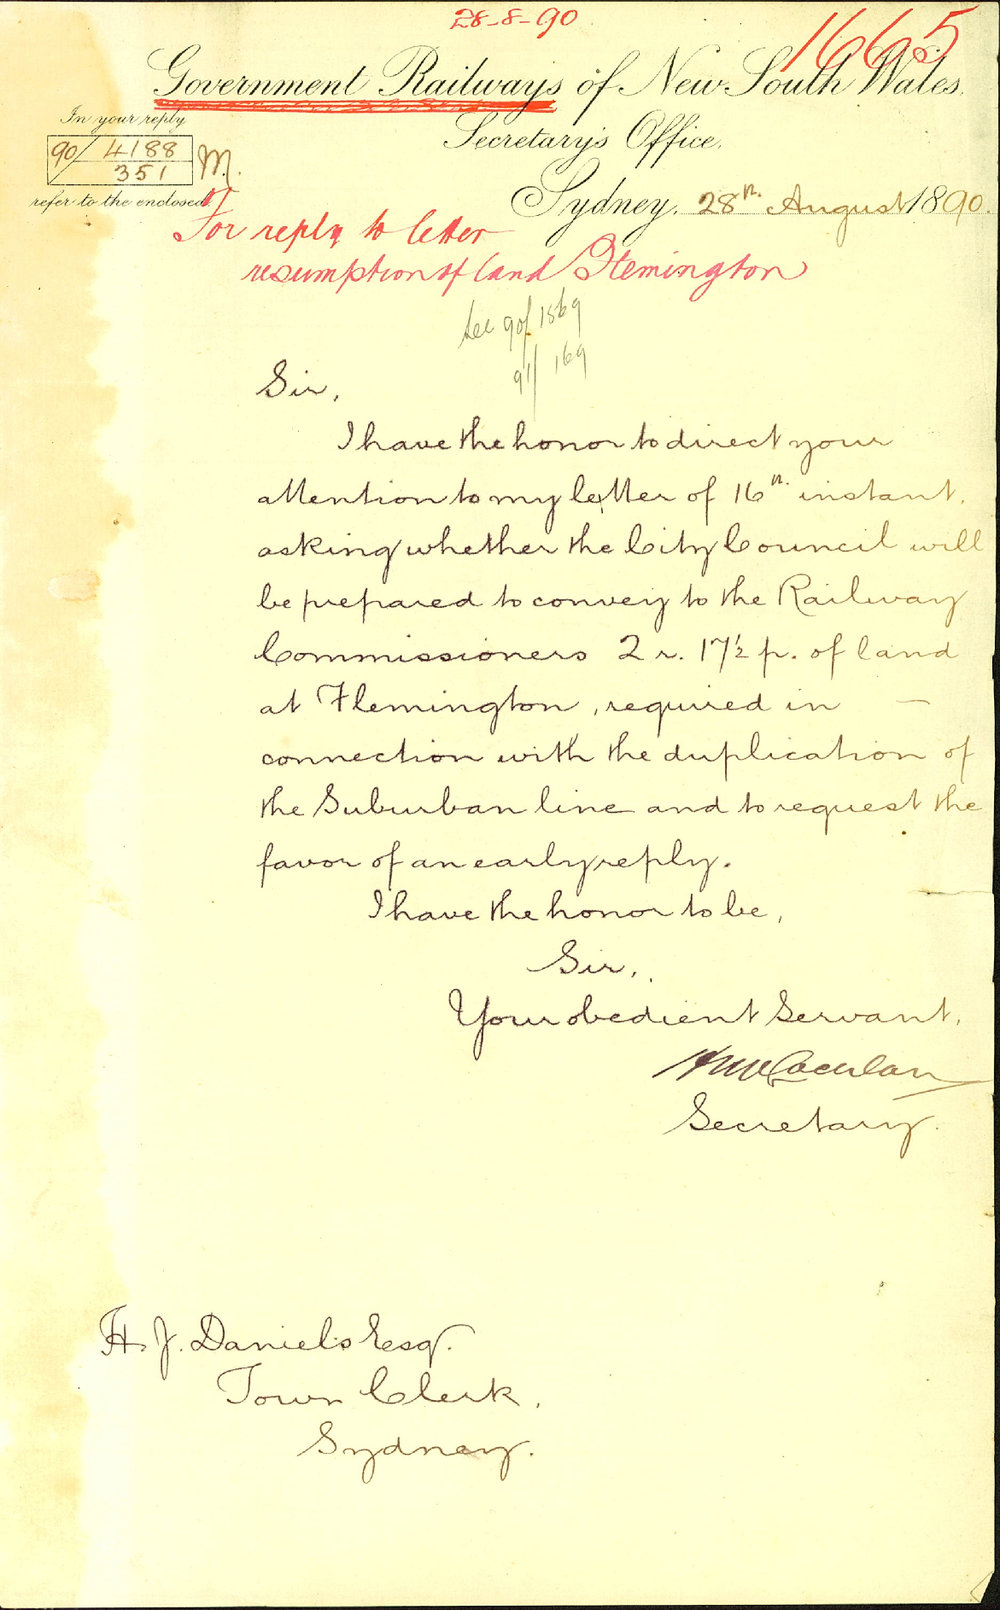 28-8-90
1665
Government Railways of New South Wales.
Secretary's Office,
In your reply
90/ 4188
351
M.
refer to the enclosed
Sydney, 28th August 1890.
For reply to letter
resumption of land Flemington
See 90/1869
91/169
Sir,
I have the honor to direct your
attention to my letter of 16th instant,
asking whether the City Council will
be prepared to convey to the Railway
Commissioners 2 r. 17½ p. of land
at Flemington, required in —
connection with the duplication of
the Suburban line and to request the
favor of an early reply.
I have the honor to be,
Sir,
Your obedient Servant,
H McLachlan
Secretary.
H. J. Daniels Esq.
Town Clerk,
Sydney.